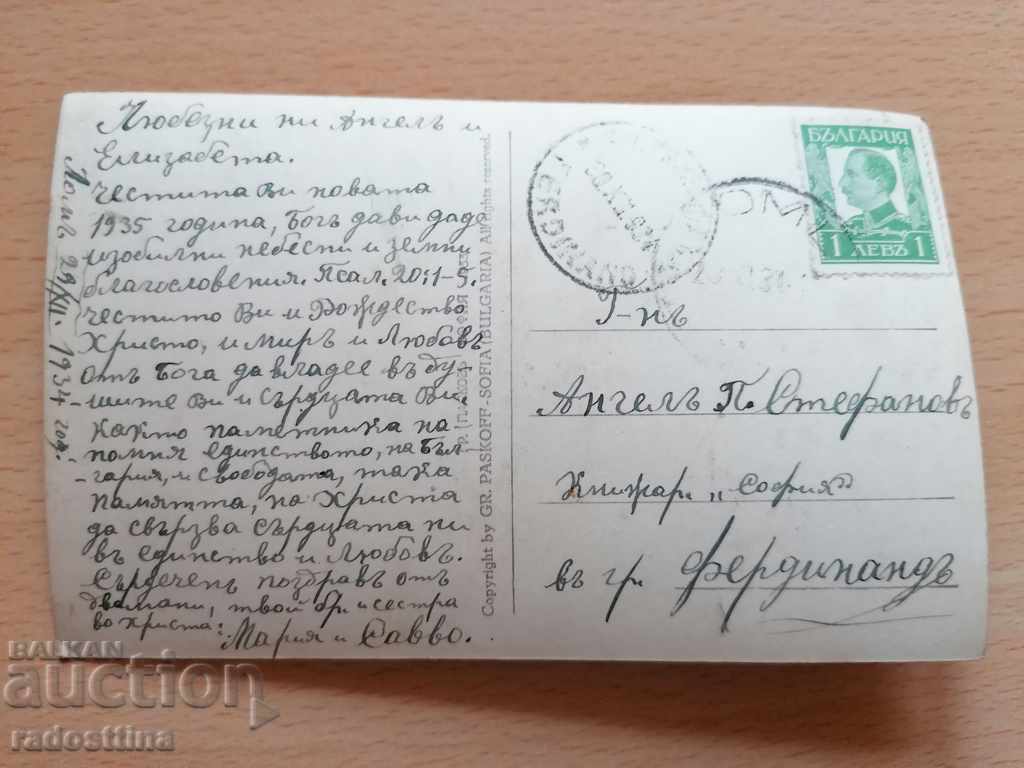 Любезни ни Ангелъ и
Елизабета.
Честита Ви новата
1935 година, Богъ да ви даде
изобилни небесни и земни
благословения. Псал. 20:1-5.
Честито Ви и Рождество
Христо, и миръ и Любовъ
отъ Бога да владее въ ду-
шите Ви и сърдцата Ви.
както паметника на-
помня единството, на Бъл-
-гария, и свободата, така
паметта, на Христа
да свързва сърдцата ни
въ единство и Любовъ.
Сърдеченъ поздравъ отъ
двамани, твой бр. и сестра
во христа:
Мария и Савво.
Ломъ 29/XII. 1934 год.
Copyright by GR. PASKOFF-SOFIA (BULGARIA) All rights reserved.
ГР. ПАСКОВЪ СОФИЯ
FERDINAND
БЪЛГАРИЯ
1 ЛЕВЪ 1
Г-нъ
Ангелъ П. Стефановъ
Книжар. „София"
въ гр. Фердинандъ
BALKAN
auction
radosttina